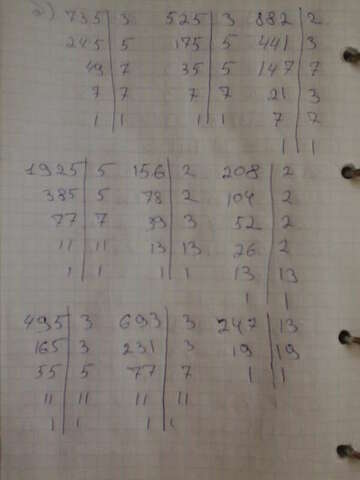 2) 735 | 3 525 | 3 882 | 2
245 | 5 175 | 5 441 | 3
49 | 7 35 | 5 147 | 7
7 | 7 7 | 7 21 | 3
1 | 1 1 | 1 7 | 7
1 | 1
1925 | 5 156 | 2 208 | 2
385 | 5 78 | 2 104 | 2
77 | 7 39 | 3 52 | 2
11 | 11 13 | 13 26 | 2
1 | 1 1 | 1 13 | 13
1 | 1
495 | 3 693 | 3 247 | 13
165 | 3 231 | 3 19 | 19
55 | 5 77 | 7 1 | 1
11 | 11 11 | 11
1 | 1 1 | 1